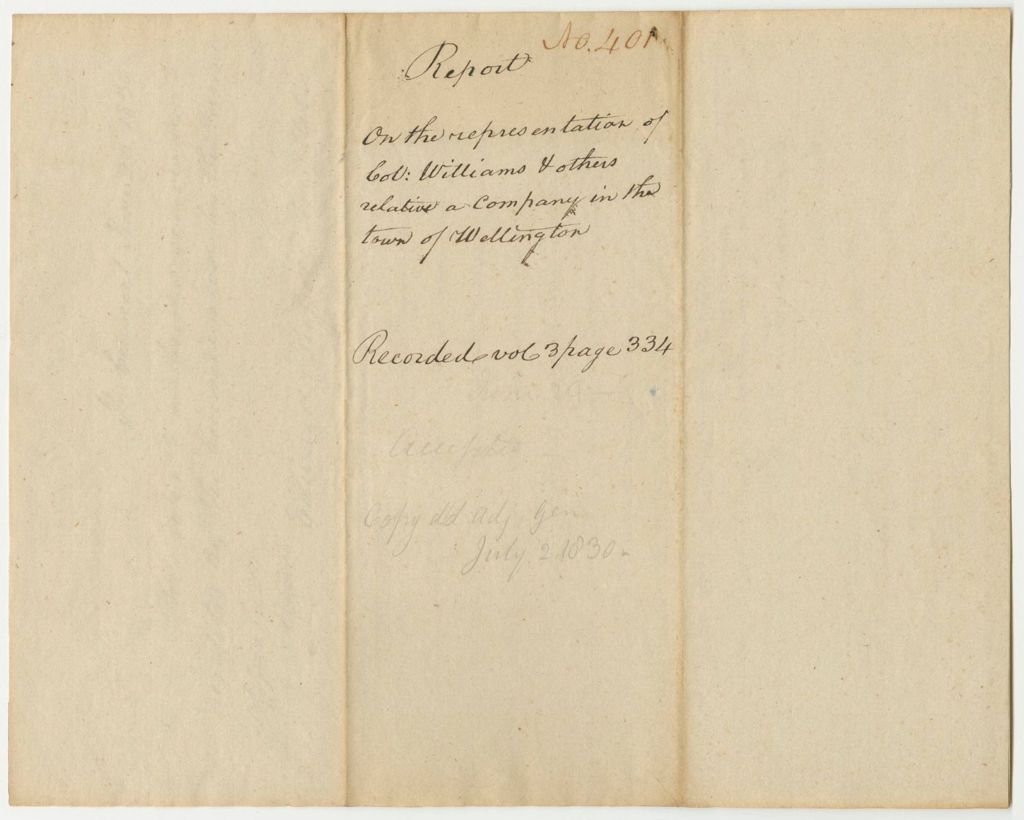 No. 401.
Report
On the representation of
Col: Williams & others
relative a Company in the
town of Wellington
Recorded vol 3 page 334
Accepted
Copy dd Adj Gen
July 2 1830.